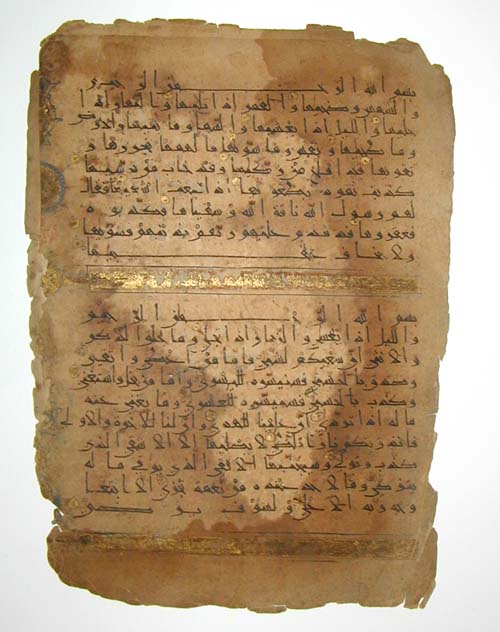 بسم الله الرحمن الرحيم
والشمس وضحيها والقمر اذا تليها والنهار اذا
جليها والليل اذا يغشيها والسما وما بنيها والارض
وما طحيها ونفس وما سويها فالهمها فجورها و
تقويها قد افلح من زكيها وقد خاب من دسيها
كذبت ثمود بطغويها اذ انبعث اشقيها فقال
لهم رسول الله ناقة الله وسقيها فكذبوه
فعقروها فدمدم عليهم ربهم بذنبهم فسويها
ولا يخاف عقبيها
بسم الله الرحمن الرحيم
والليل اذا يغشى والنهار اذا تجلى وما خلق الذكر
والانثى ان سعيكم لشتى فاما من اعطى واتقى
وصدق بالحسنى فسنيسره لليسرى واما من بخل واستغنى
وكذب بالحسنى فسنيسره للعسرى وما يغني عنه
ماله اذا تردى ان علينا للهدى وان لنا للاخرة والاولى
فانذرتكم نارا تلظى لا يصليها الا الاشقى الذي
كذب وتولى وسيجنبها الاتقى الذي يوتي ماله
يتزكى وما لاحد عنده من نعمة تجزى الا ابتغا
وجه ربه الاعلى ولسوف يرضى